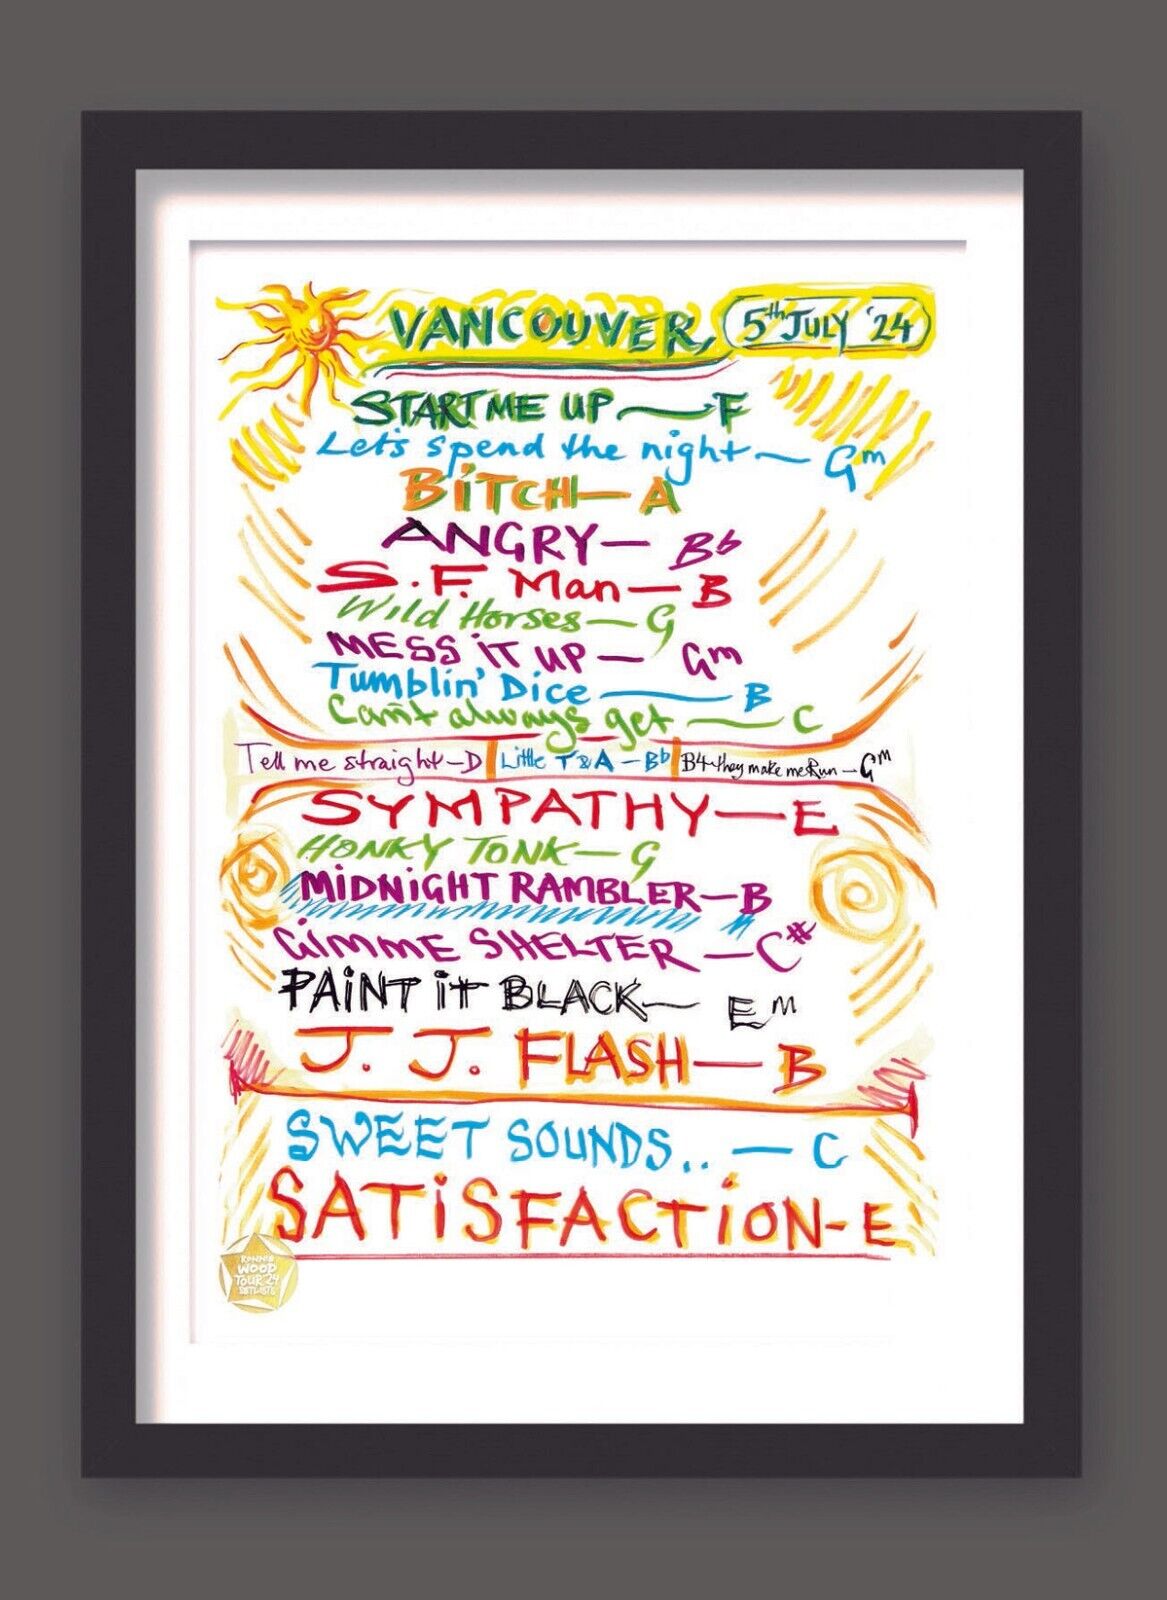 VANCOUVER, 5th JULY '24
START ME UP — F
Let's spend the night — Gm
BiTCH — A
ANGRY — Bb
S.F. Man — B
Wild Horses — G
MESS iT UP — Gm
Tumblin' Dice — B
Can't always get — C
Tell me straight — D Little T & A — Bb B4 they make me Run — Gm
SYMPATHY — E
HONKY TONK — G
MiDNiGHT RAMBLER — B
GIMME SHELTER — C#
PAiNT iT BLACK — Em
J. J. FLASH — B
SWEET SOUNDS.. — C
SATiSFACTiON - E
RONNIE
WOOD
TOUR 24
SETLISTS